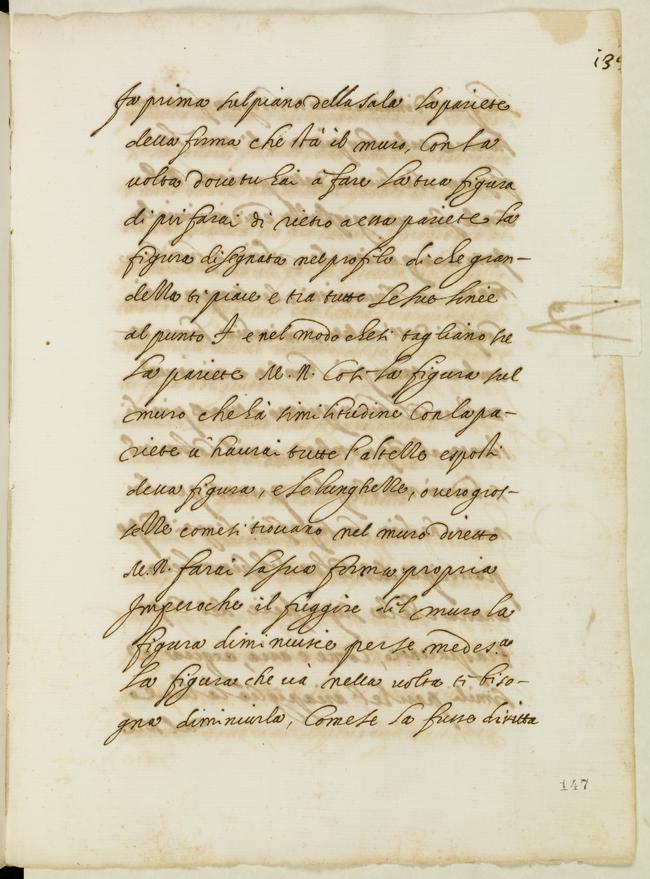 13
Fa prima sul piano della sala la pariete
della forma che stà il muro, con la
volta dove tu hai à fare la tua figura
di poi farai di rietro a essa pariete la
figura disegnata nel profilo di che gran-
dezza ti piace e tra tutte le sue linee
al punto F e nel modo che si tagliano su
la pariete M. N. Così la figura sul
muro che hà similitudine con la pa-
riete u' haurai tutte l'altezze e sporti
della figura, e le lunghezze, overo gros-
sezze come si trovano nel muro diretto
M. N. farai la sua forma propria
Imperoche il fuggire del muro la
figura diminuisce per se medes.a
La figura che và nella volta ti biso-
gna diminuirla, Come se la fusse diritta
147